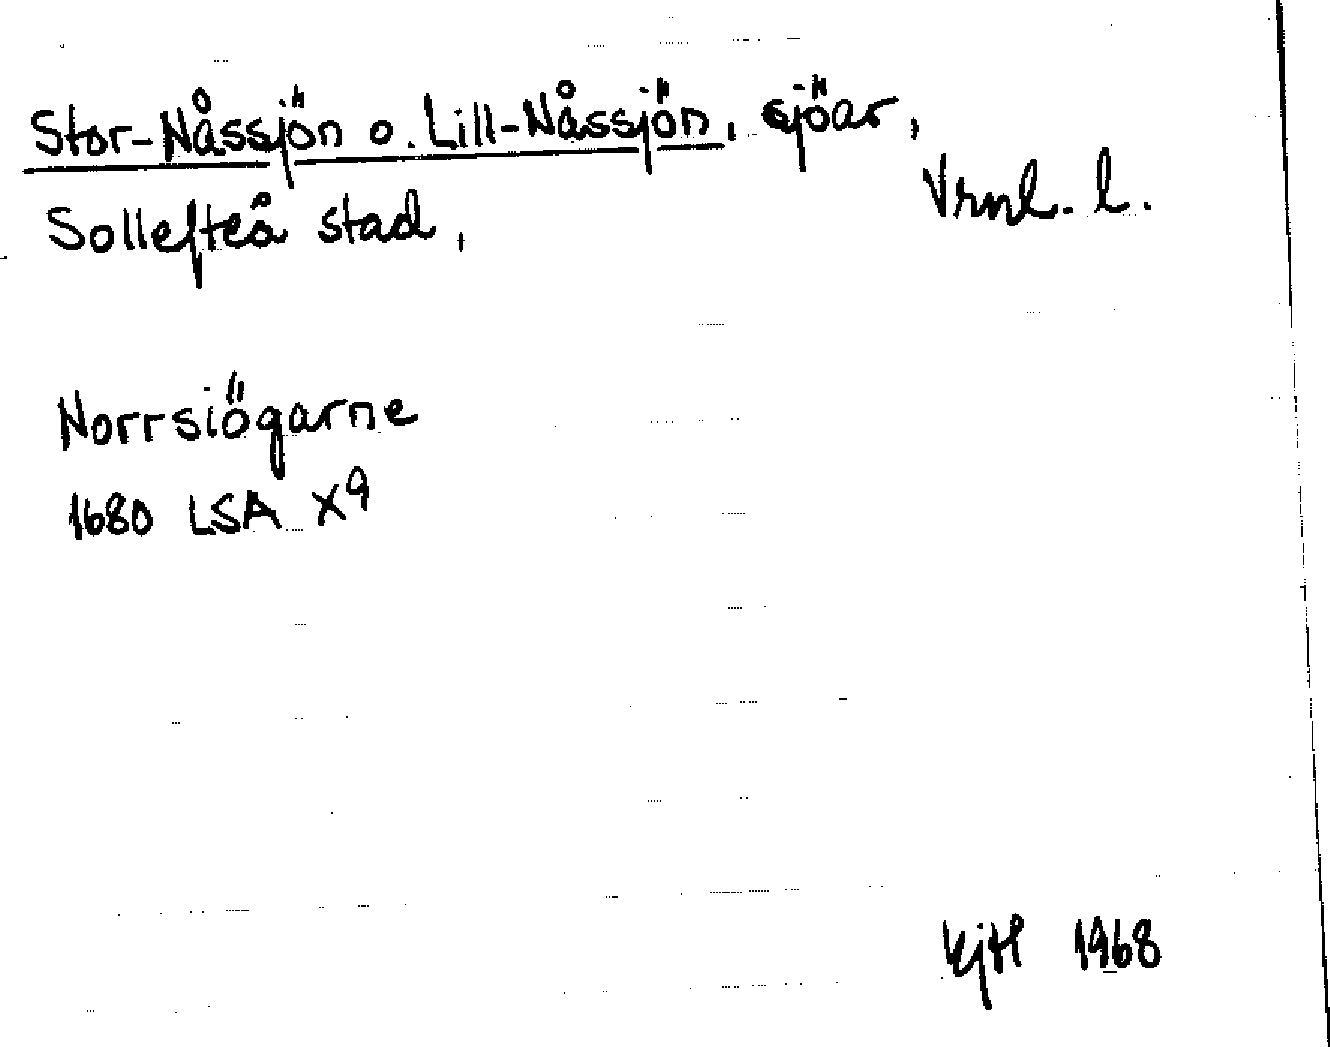 Stor-Nåssjön o. Lill-Nåssjön, sjöar,
Vrnl. l.
Sollefteå stad,
Norrsiögarne
1680 LSA X9
KjH 1968